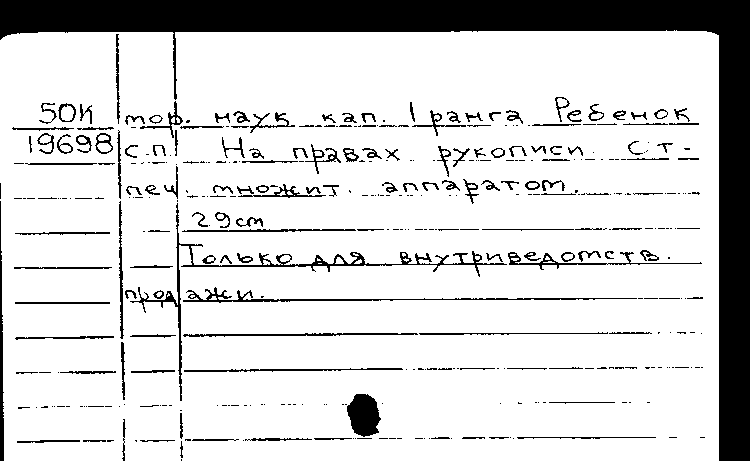 50К тор. наук кап. I ранга Ребенок
19698 с.п. На правах рукописи. Ст-
печ. множит. аппаратом.
29 cm
Только для внутриведомств.
продажи.